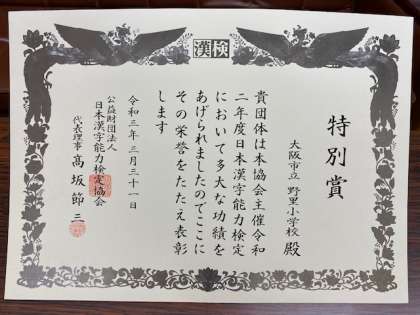 漢検
特別賞
大阪市立 野里小学校 殿
貴団体は本協会主催令和
二年度日本漢字能力検定
において多大な功績を
あげられましたのでここに
その栄誉をたたえ表彰
します
令和三年 三月三十一日
公益財団法人
日本漢字能力検定協会
代表理事 髙坂節三